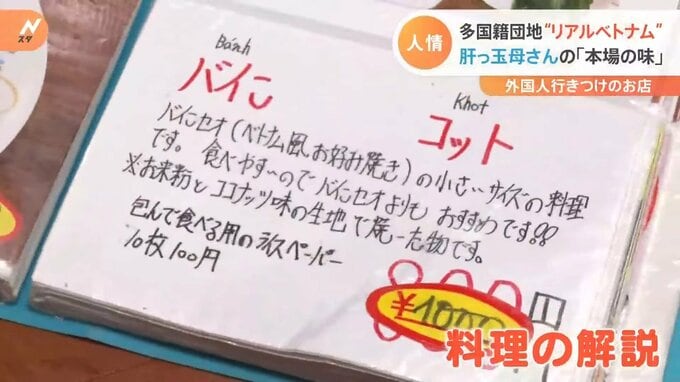 Nスタ
人情
多国籍団地“リアルベトナム”
肝っ玉母さんの「本場の味」
外国人行きつけのお店
Bánh
バイん
Khot
コット
バイんセオ(ベトナム風お好み焼き)の小さいサイズの料理
です。食べやすいのでバイんセオよりもおすすめです!!
※お米粉とココナッツ味の生地で焼いた物です。
包んで食べる用のライスペーパー
10枚100円
¥1000
料理の解説